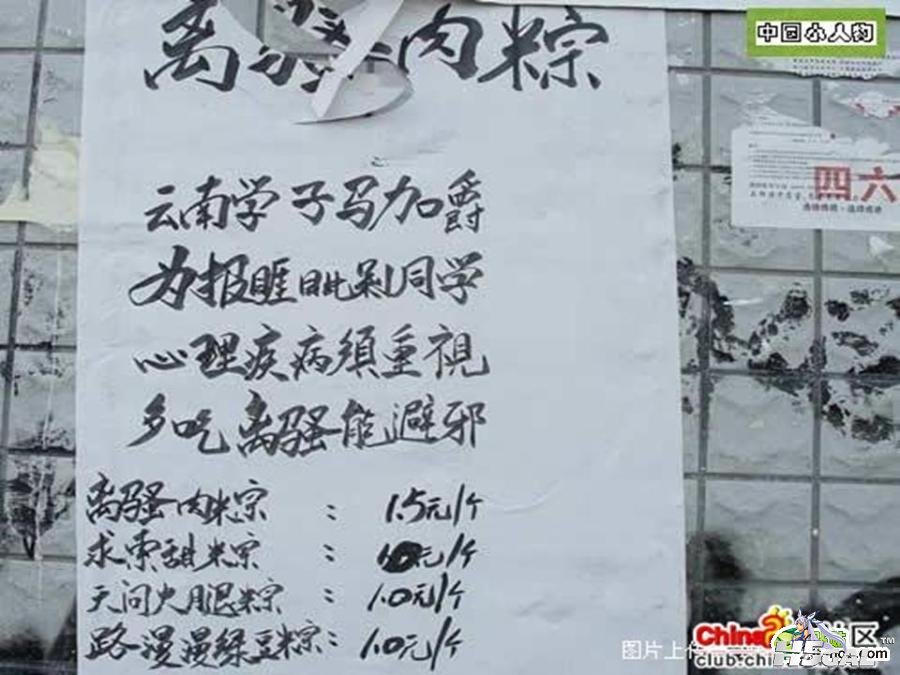 离骚肉粽
中国小人物
四六
云南学子马加爵
为报睚眦剁同学
心理疾病須重視
多吃离骚能避邪
离骚肉粽 : 1.5元/个
求索甜粽 : 1.0元/个
天问火腿粽 : 1.0元/个
路漫漫绿豆粽: 1.0元/个
图片上传
China
社区
club.chi
.com